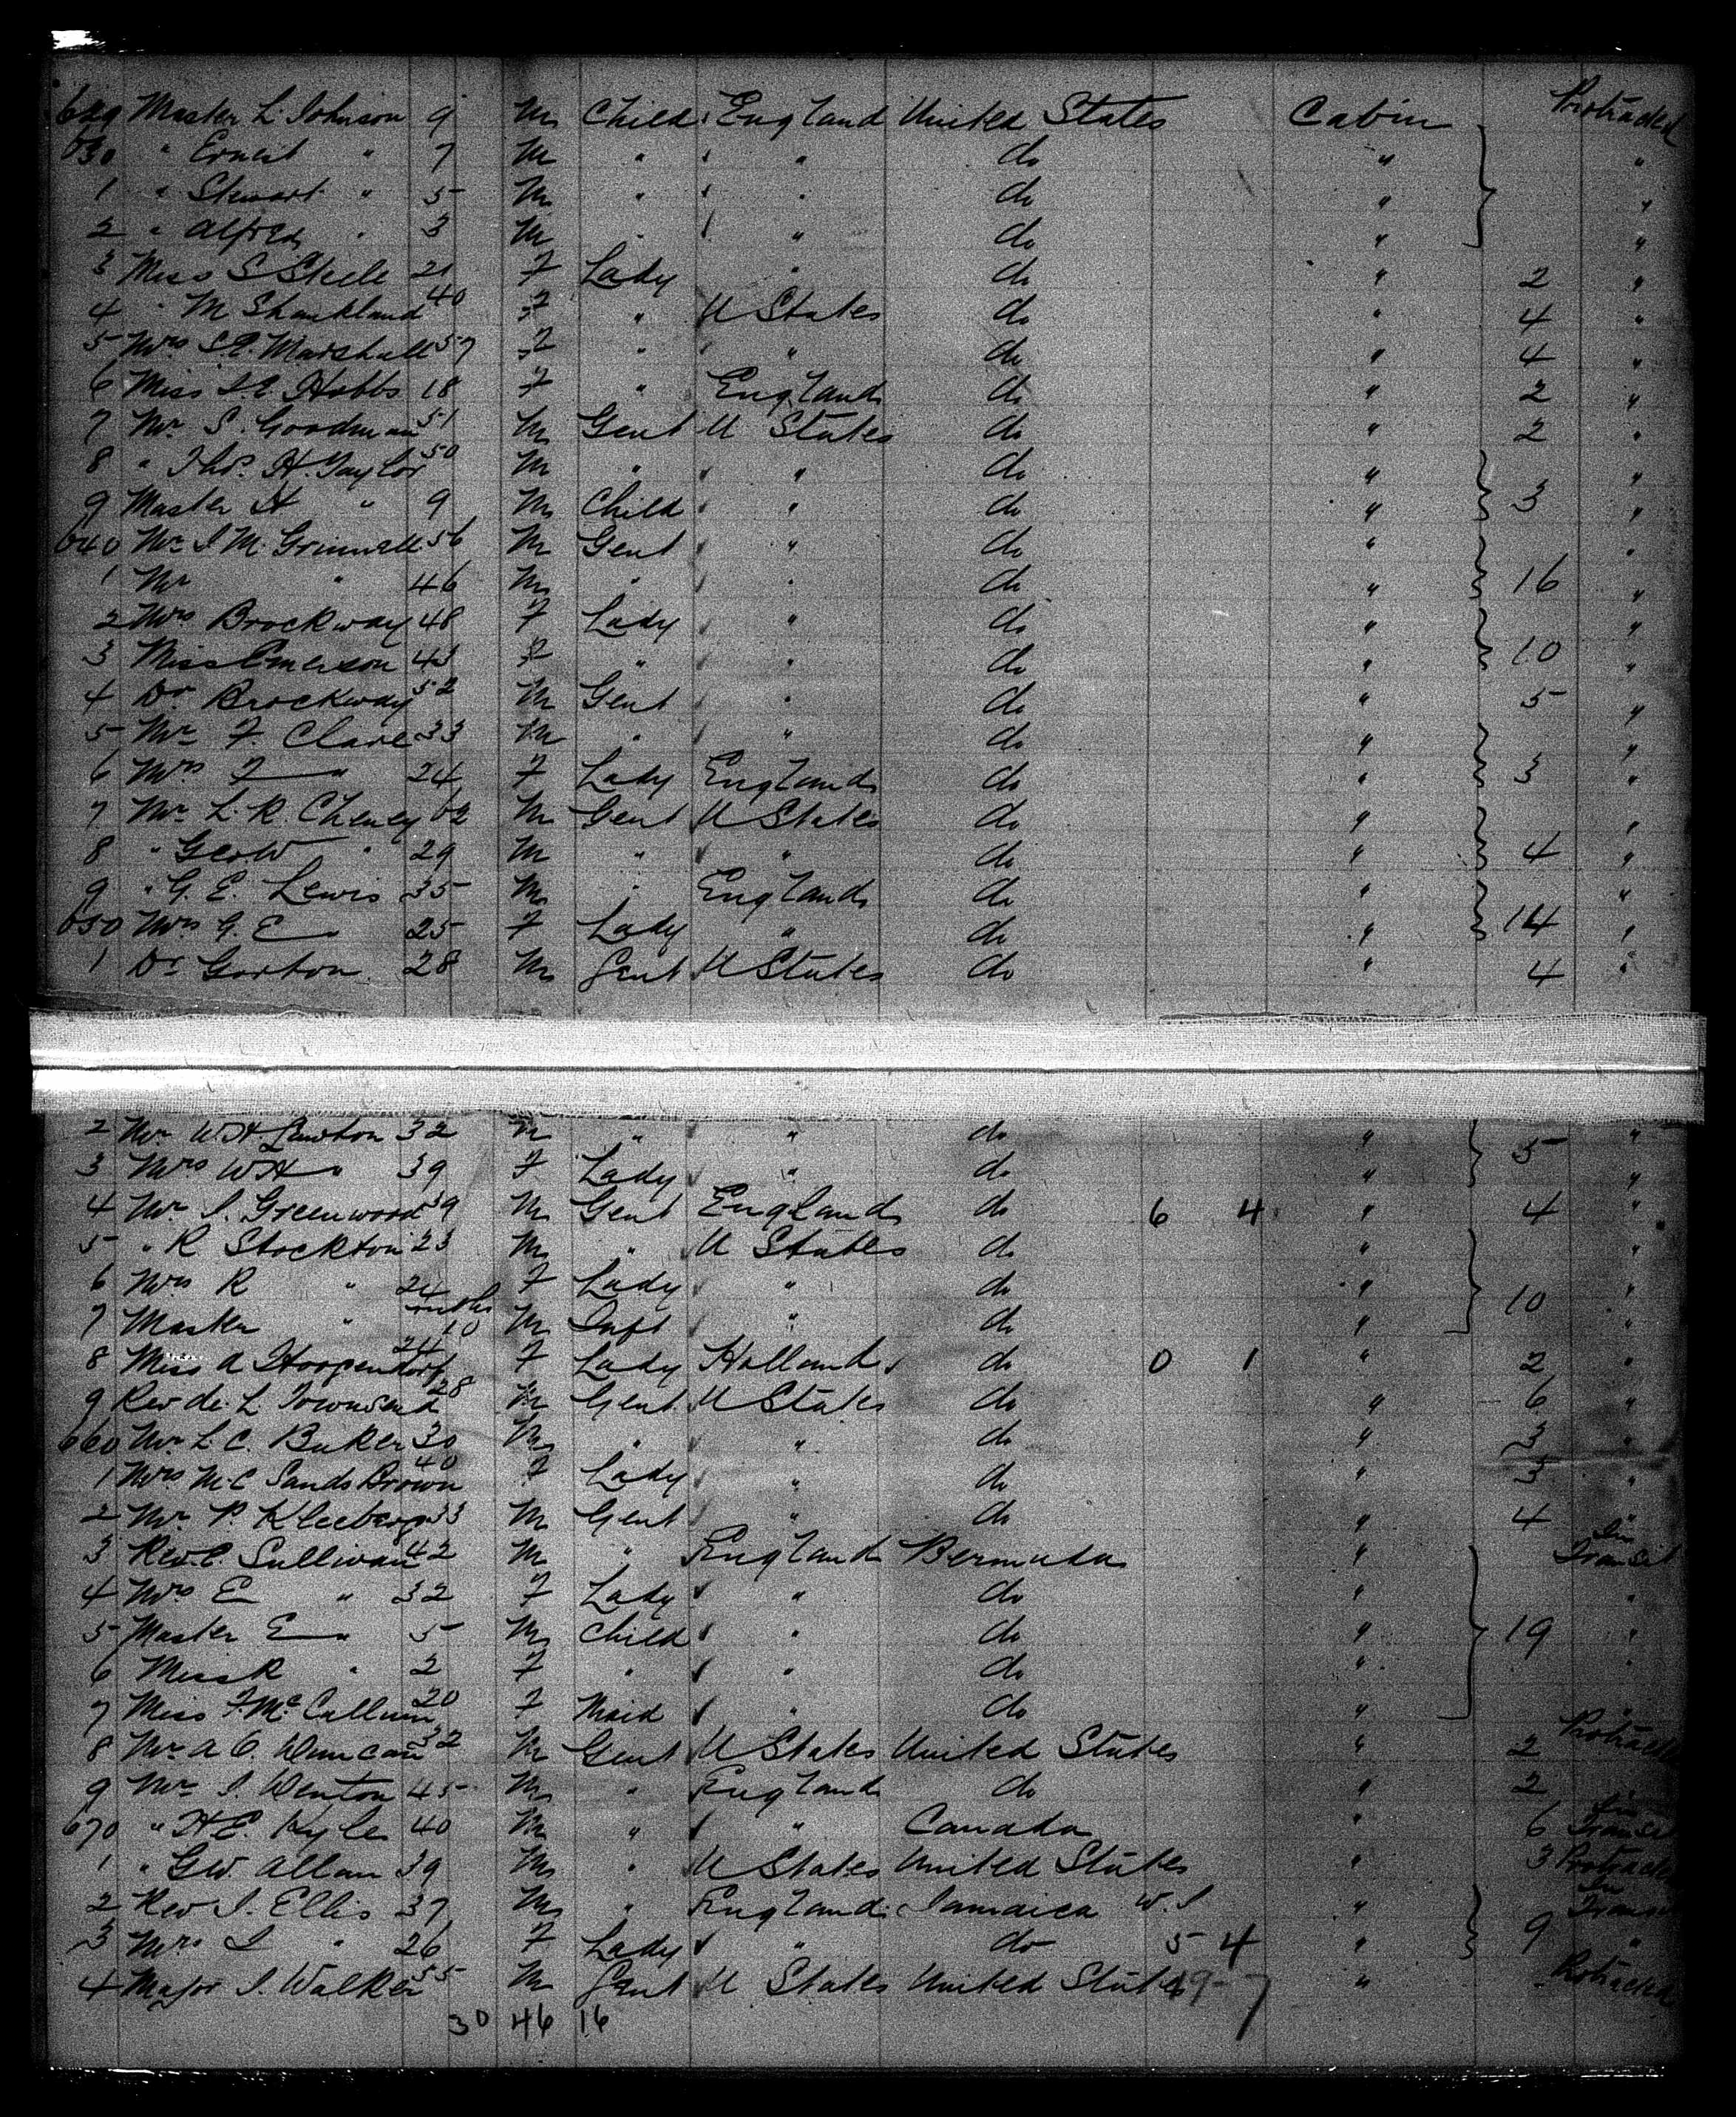 629 Master L. Johnson 9 M Child England United States Cabin Protracted
630 " Ernest " 7 M " " do " "
1 " Stewart " 5 M " " do " "
2 " Alfred " 3 M " " do " "
3 Miss S Steele 21 F Lady " do " 2 "
4 " M Shankland 40 F " U States do " 4 "
5 Mrs S.E. Marshall 57 F " " do " 4 "
6 Miss S.E. Hobbs 18 F " England do " 2 "
7 Mr S. Goodman 51 M Gent U States do " 2 "
8 " Thos. H. Taylor 50 M " " do " "
9 Master H " 9 M Child " do " 3 "
640 Mr I M. Grinnell 56 M Gent " do " "
1 Mr " 46 M " " do " 16 "
2 Mrs Brockway 48 F Lady " do " "
3 Miss Emerson 43 F " " do " 10 "
4 Dr Brockway 52 M Gent " do " 5 "
5 Mr F. Clare 33 M " " do " "
6 Mrs F " 24 F Lady England do " 3 "
7 Mr L. R. Cheney 62 M Gent U States do " "
8 " Geo W " 29 M " " do " 4 "
9 " G. E. Lewis 35 M " England do " "
650 Mrs G. E " 25 F Lady " do " 14 "
1 Dr Gorton 28 M Gent U States do " 4 "
2 Mr W.H. Lawton 32 M " " do " "
3 Mrs W H " 39 F Lady " do " 5 "
4 Mr I. Greenwood 39 M Gent England do 6 4 " 4 "
5 " R Stockton 23 M " U States do " "
6 Mrs R " 24 F Lady " do " 10 "
7 Master " mths 10 M Inft " do " "
8 Miss A Hoogendorf 24 F Lady Holland do 0 1 " 2 "
9 Rev de L Townsend 28 M Gent U States do " 6 "
660 Mr L. C. Baker 30 M " " do " 3 "
1 Mrs M.C Sands Brown 40 F Lady " do " "
2 Mr P. Kleeberg 33 M Gent " do " 4 "
3 Rev. E. Sullivan 42 M " England Bermuda " In Transit
4 Mrs E " 32 F Lady " do " "
5 Master E " 5 M Child " do " 19 "
6 Miss R " 2 F " " do " "
7 Miss F. McCallum 20 F Maid " do " "
8 Mr A C. Duncan 32 M Gent U States United States " 2 Protracted
9 Mr I. Denton 45 M " England do " 2 "
670 " H E. Kyle 40 M " " Canada " 6 In Transit
1 " G.W. Allan 39 M " U States United States " 3 Protracted
2 Rev I. Ellis 37 M " England Jamaica W. I " In Transit
3 Mrs I " 26 F Lady " do 5 4 " 9 "
4 Major I. Walker 55 M Gent U States United States 19 7 " Protracted
30 46 16